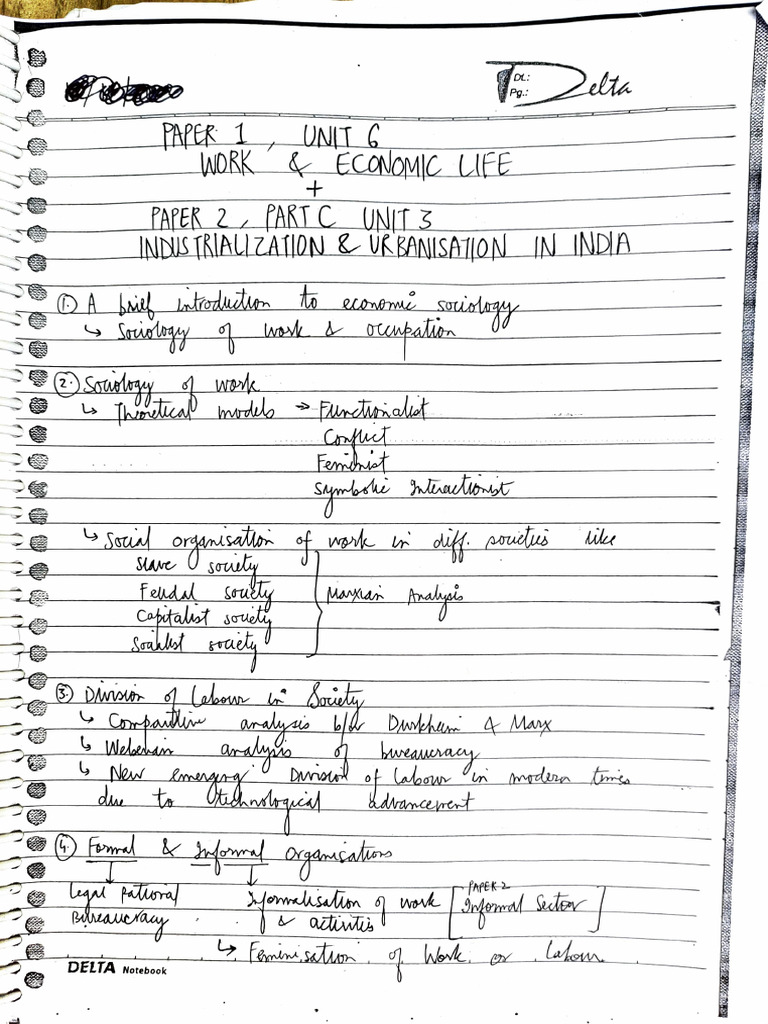 DL:
Pg.:
Delta
PAPER 1, UNIT 6
WORK & ECONOMIC LIFE
+
PAPER 2, PART C UNIT 3
INDUSTRIALIZATION & URBANISATION IN INDIA
1. A brief introduction to economic sociology
↳ Sociology of work & occupation
2. Sociology of work
↳ Theoretical models → Functionalist
Conflict
Feminist
Symbolic Interactionist
↳ Social organisation of work in diff. societies like
Slave society
Feudal society } Marxian Analysis
Capitalist society
Socialist society
3. Division of Labour in Society
↳ Comparitive analysis b/w Durkheim & Marx
↳ Weberian analysis of bureaucracy
↳ New emerging Division of labour in modern times
due to technological advancement
4. Formal & Informal organisations
PAPER 2
Legal Rational Informalisation of work [Informal Sector]
Bureaucracy & activities
↳ Feminisation of Work or Labour
DELTA Notebook